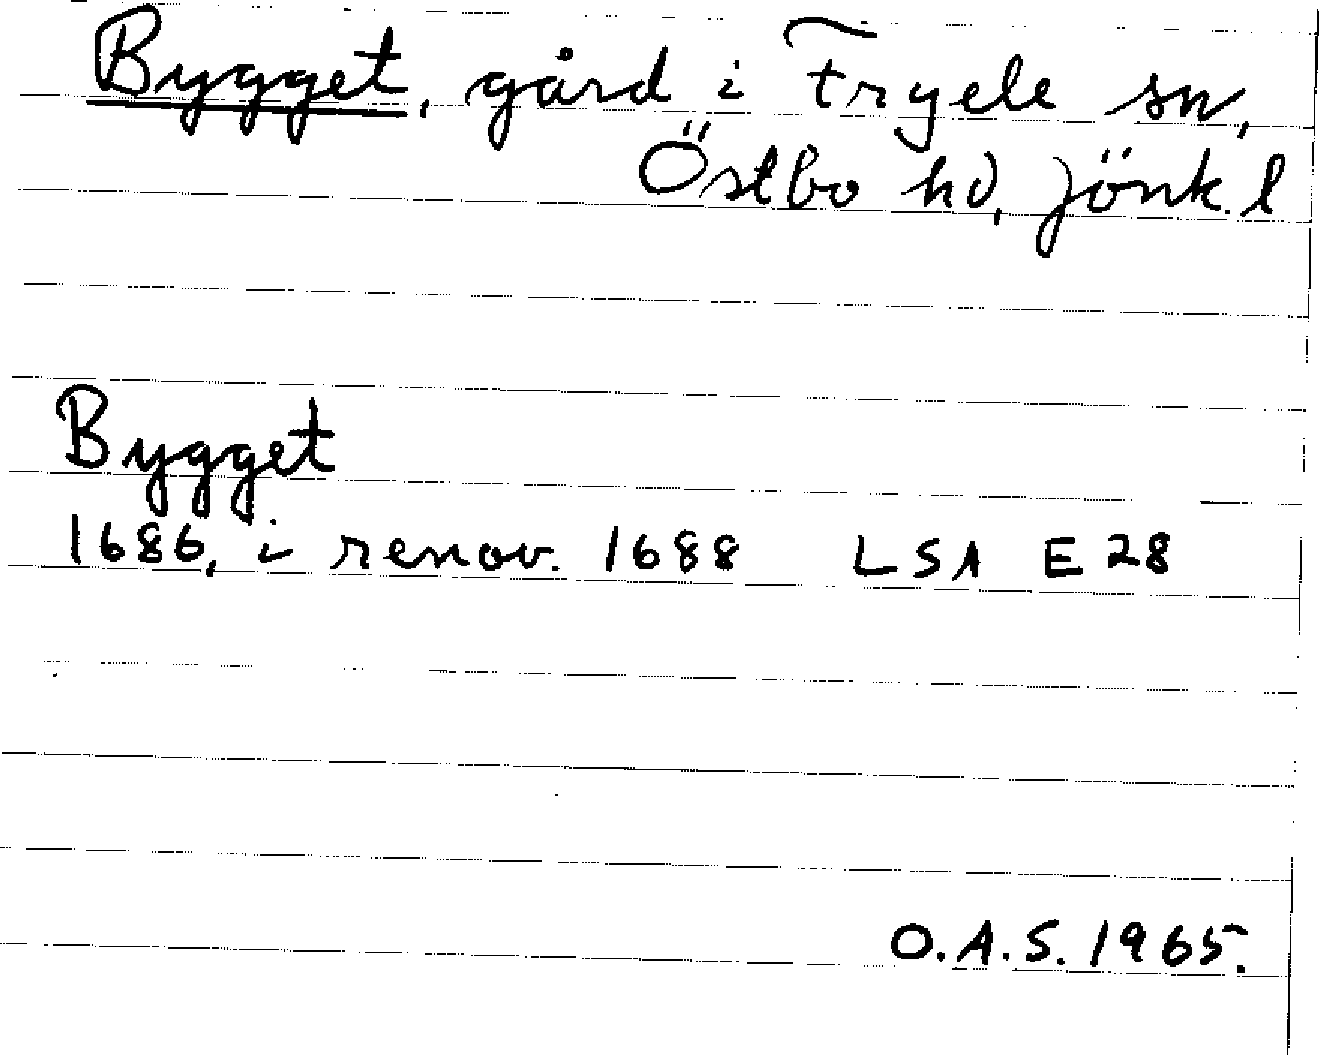 Bygget, gård i Fryele sn,
Östbo hd, Jönk. l
Bygget
1686, i renov. 1688 LSA E 28
O.A.S. 1965.